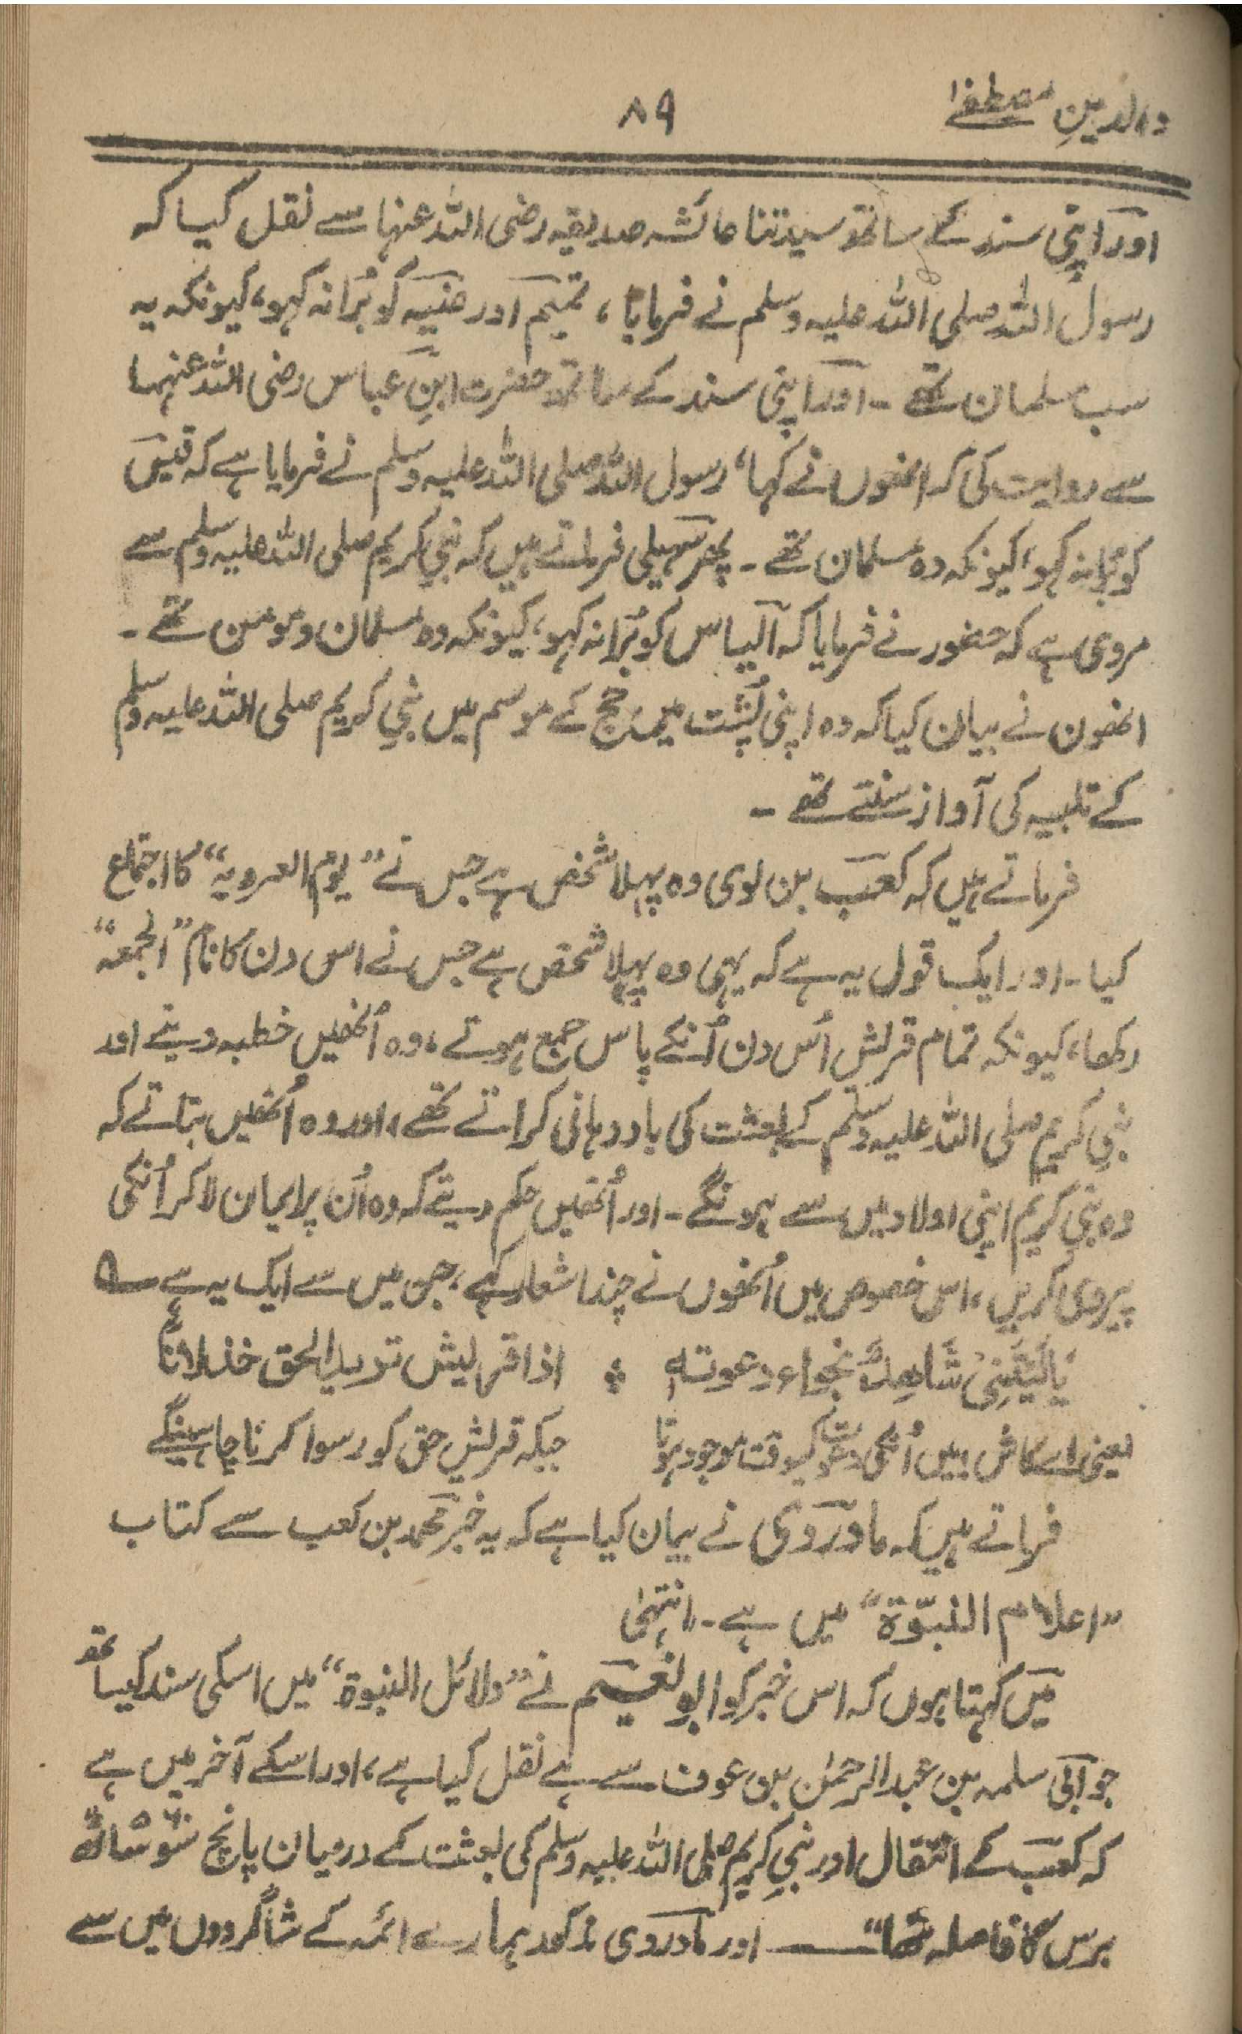 والدینِ مصطفےٰ
۸۹
اور اپنی سند کے ساتھ سیدتنا عائشہ صدیقہ رضی اللہ عنہا سے نقل کیا کہ
رسول اللہ صلی اللہ علیہ وسلم نے فرمایا، تمیم اور ضبیہ کو بُرا نہ کہو، کیونکہ یہ
سب مسلمان تھے ۔ اور اپنی سند کے ساتھ حضرت ابنِ عباس رضی اللہ عنہما
سے روایت کی کہ انھوں نے کہا، رسول اللہ صلی اللہ علیہ وسلم نے فرمایا ہے کہ قیس
کو بُرا نہ کہو، کیونکہ وہ مسلمان تھے ۔ پھر سہیلی فرماتے ہیں کہ نبیِ کریم صلی اللہ علیہ وسلم سے
مروی ہے کہ حضور نے فرمایا کہ الیاس کو بُرا نہ کہو، کیونکہ وہ مسلمان و مومن تھے ۔
انھوں نے بیان کیا کہ وہ اپنی پُشت میں حج کے موسم میں نبیِ کریم صلی اللہ علیہ وسلم
کے تلبیہ کی آواز سنتے تھے ۔
فرماتے ہیں کہ کعب بن لوی وہ پہلا شخص ہے جس نے ”یوم العروبہ“ کا اجتماع
کیا ۔ اور ایک قول یہ ہے کہ یہی وہ پہلا شخص ہے جس نے اس دن کا نام ”الجمعہ“
رکھا، کیونکہ تمام قریش اُس دن اُنکے پاس جمع ہوتے، وہ اُنھیں خطبہ دیتے اور
نبیِ کریم صلی اللہ علیہ وسلم کے بعثت کی یاد دہانی کراتے تھے، اور وہ اُنھیں بتاتے کہ
وہ نبیِ کریم اپنی اولاد میں سے ہونگے ۔ اور اُنھیں حکم دیتے کہ وہ اُن پر ایمان لا کر اُنکی
پیروی کریں، اس خصوص میں اُنھوں نے چند اشعار کہے، جن میں سے ایک یہ ہے ؎
یَالَیْتَنِیْ شَاھِدٌ نجواء دعوتہٖ ؞ اذا قریش ترید الحق خذلاناً
یعنی اے کاش! میں اُنکی دعوت کیوقت موجود ہوتا جبکہ قریش حق کو رسوا کرنا چاہینگے
فرماتے ہیں کہ ماوردی نے بیان کیا ہے کہ یہ خبر محمد بن کعب سے کتاب
”اعلام النبوّۃ“ میں ہے ۔ انتہیٰ
میں کہتا ہوں کہ اس خبر کو ابو نعیم نے ”دلائل النبوۃ“ میں اسکی سند کیساتھ
جو ابی سلمہ بن عبد الرحمٰن بن عوف سے ہے نقل کیا ہے، اور اسکے آخر میں ہے
کہ کعب کے انتقال اور نبیِ کریم صلی اللہ علیہ وسلم کی بعثت کے درمیان پانچ سَو ساٹھ
برس کا فاصلہ تھا“ ــــــ اور ماوردی مذکور ہمارے ائمہ کے شاگردوں میں سے